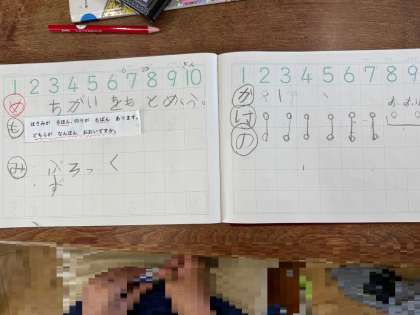 1 2 3 4 5 6 7 8 9 10
め ちがいをもとめ
も はさみが のりが あります。
どちらが なんぼん おおいですか。
み ぶろっく
ず
1 2 3 4 5 6 7 8 9
か
け
の